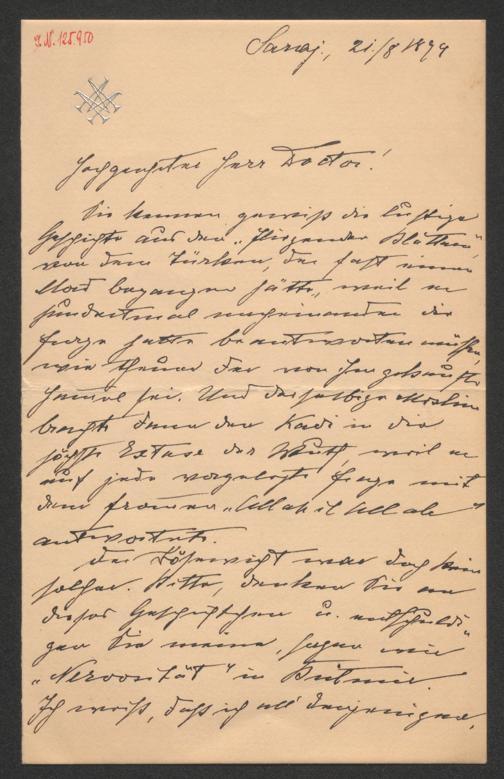 I.N. 125.950
Saraj., 21/8 1899
Hochgeehrter Herr Doctor!
Sie kennen gewiß die lustige
Geschichte aus den „Fliegenden Blättern",
von dem Türken, der fast einen
Mord begangen hätte, weil er
hundertmal nacheinander die
Frage hatte beantworten müssen,
wie theuer der von ihm gekaufte
Hammel sei. Und derselbige Moslim
brachte dann den Kadi in die
höchste Extase der Wuth, weil er
auf jede vorgelegte Frage mit
dem frommen „Allah il Allah"
antwortete.
Der Bösewicht war doch kein
solcher. Bitte, denken Sie an
dieses Geschichtchen u. entschuldi-
gen Sie meine, sagen wir
„Nervosität" in
Ich weiß, daß ich all' diejenigen,